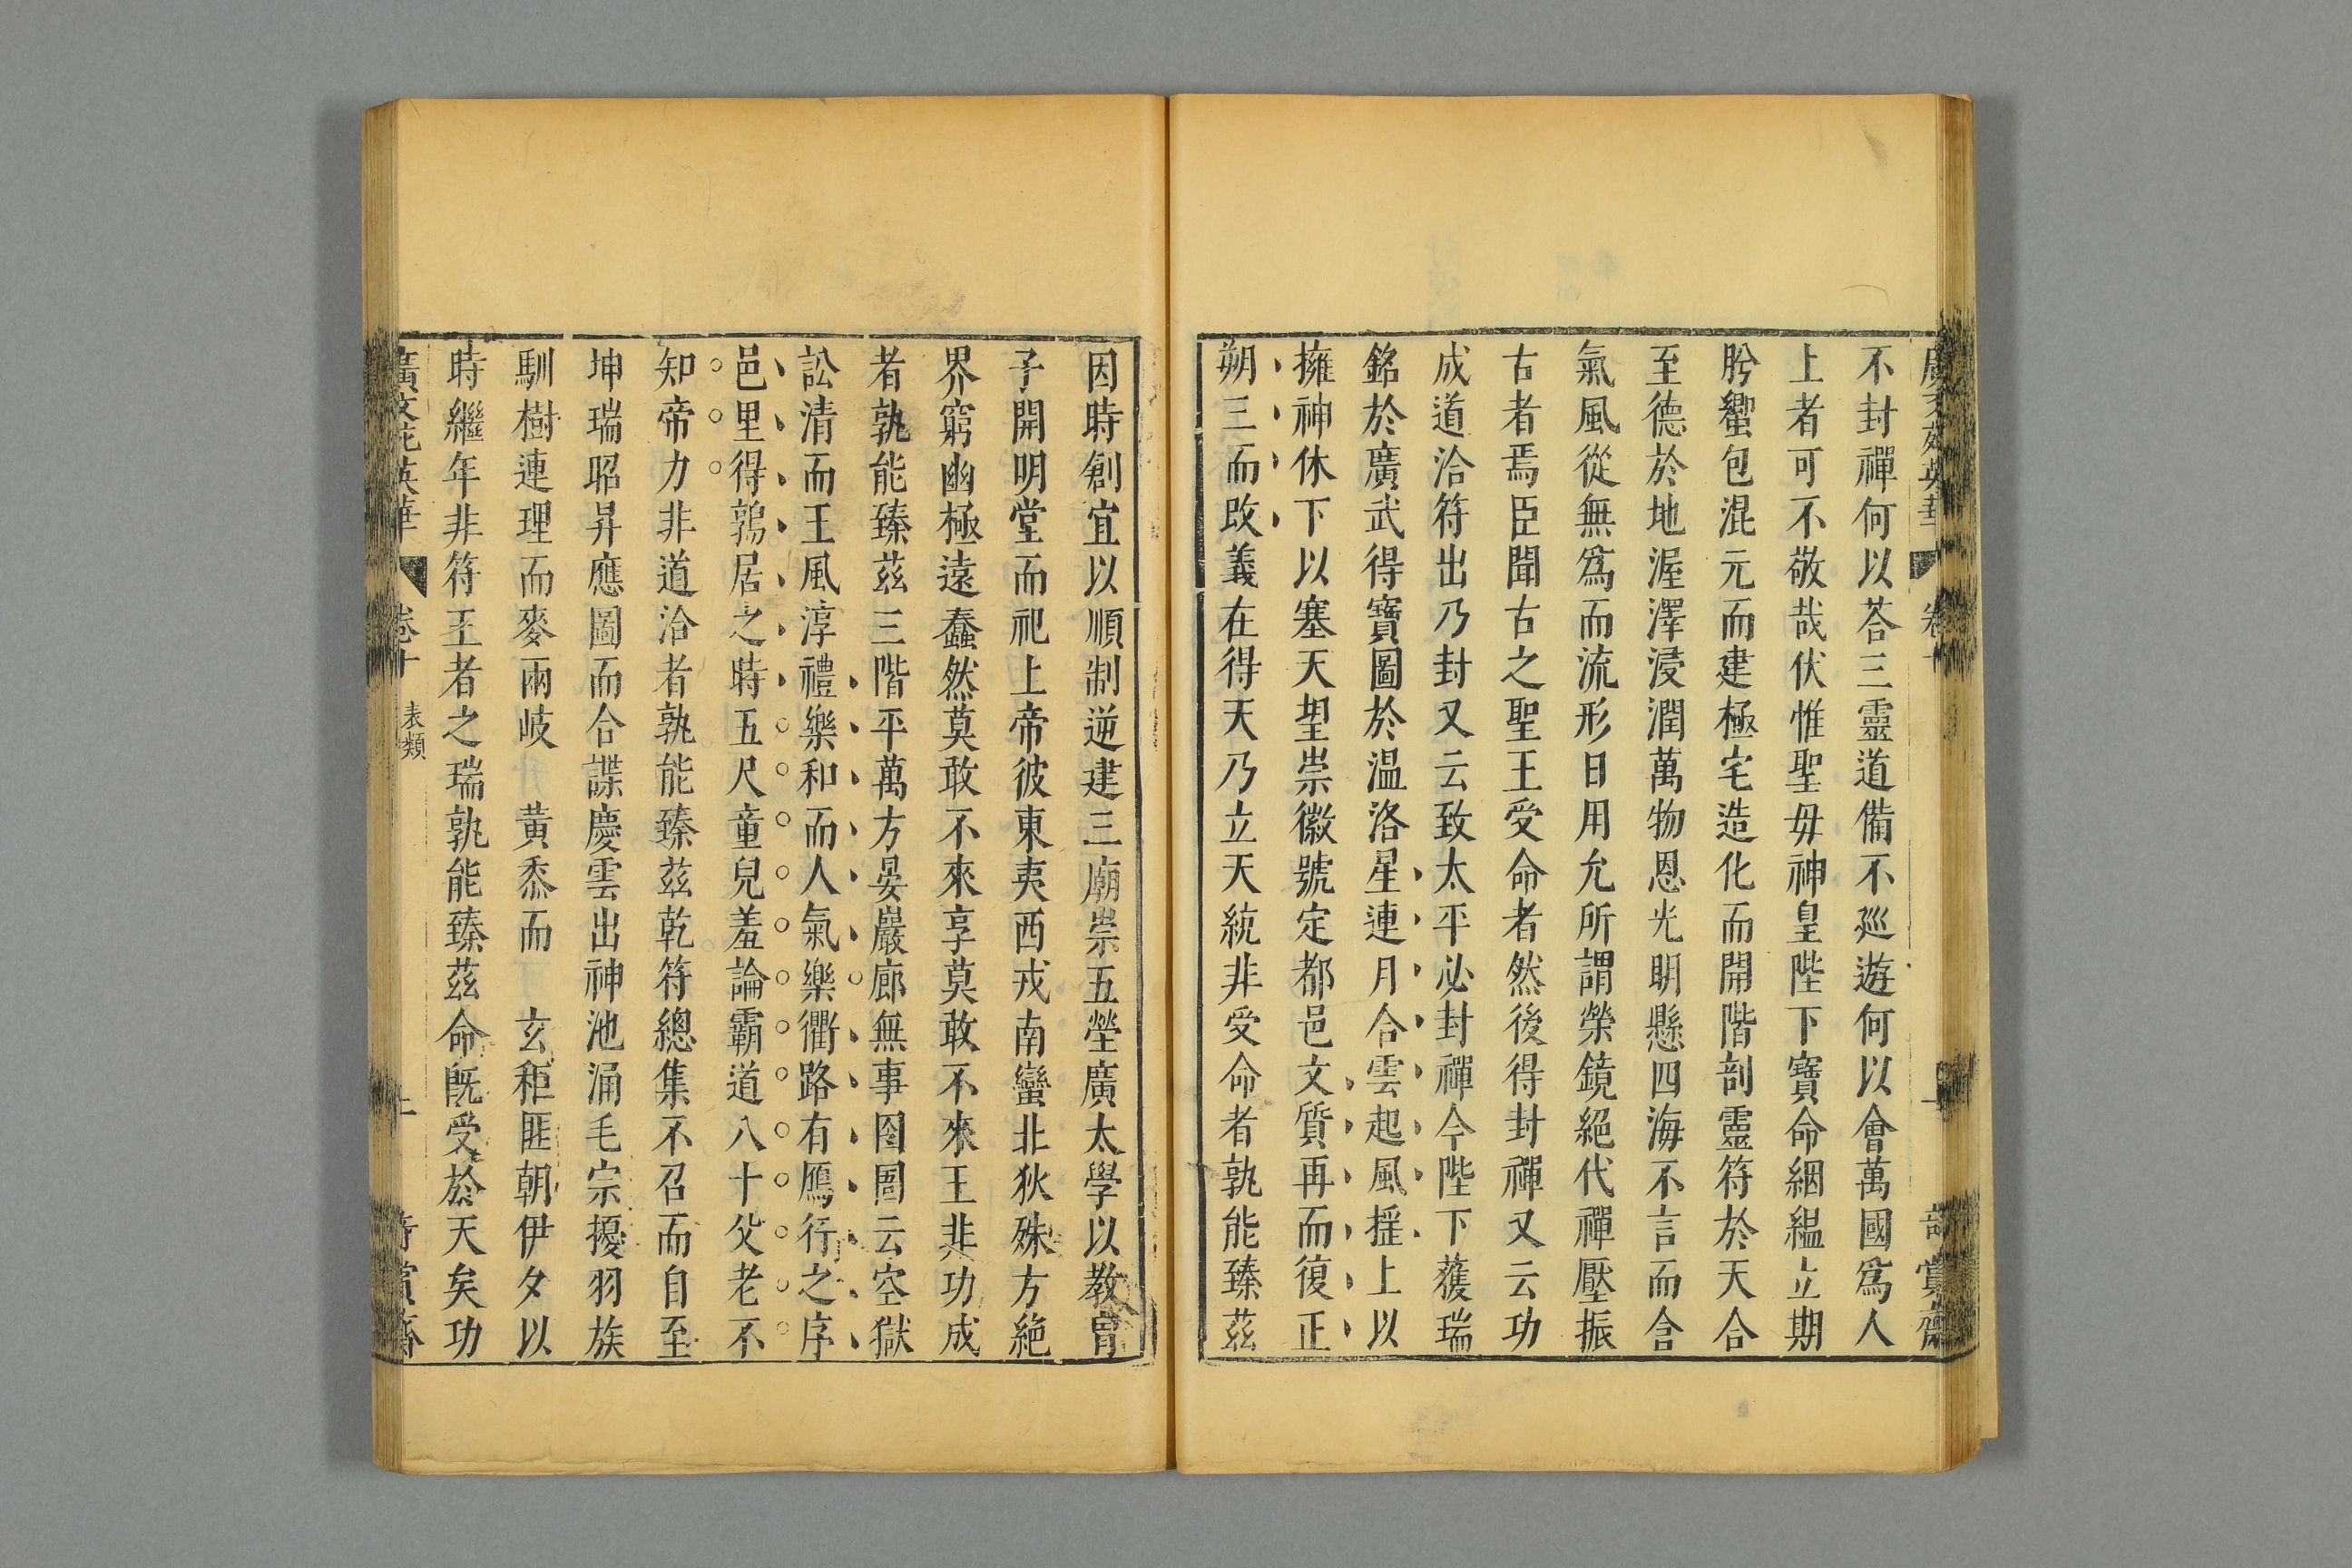 不封禪何以荅三靈道備不廵遊何以會萬國爲人
上者可不敬哉伏惟聖毋神皇陛下寶命絪緼立期
肸蠁包混元而建極宅造化而開階剖靈符於天合
至德於地渥澤浸潤萬物恩光明懸四海不言而含
氣風從無爲而流形日用允所謂榮鏡絕代禪壓振
古者焉臣聞古之聖王受命者然後得封禪又云功
成道洽符出乃封又云致太平必封禪今陛下蒦瑞
銘於廣武得寶圖於温洛星連月合雲起風摇上以
擁神休下以塞天望崇徽號定都邑文質再而復正
朔三而改義在得天乃立天統非受命者孰能臻茲
因時創宜以順制逆建三廟崇五瑩廣太學以教胄
子開明堂而祀上帝彼東夷西戎南蠻北狄殊方絶
界窮幽極遠蠢然莫敢不來享莫敢不來王非功成
者孰能臻茲三階平萬方晏巖廊無事囹圄云空獄
訟清而王風淳禮樂和而人氣樂衢路有鴈行之序
邑里得鶉居之時五尺童兒羞論霸道八十父老不
知帝力非道洽者孰能臻茲乾符總集不召而自至
坤瑞昭昇應圖而合諜慶雲出神池涌毛宗擾羽族
馴樹連理而麥兩岐 黃黍而 玄秬匪朝伊夕以
時繼年非符王者之瑞孰能臻茲命旣受於天矣功
廣文苑英華 卷十 表類